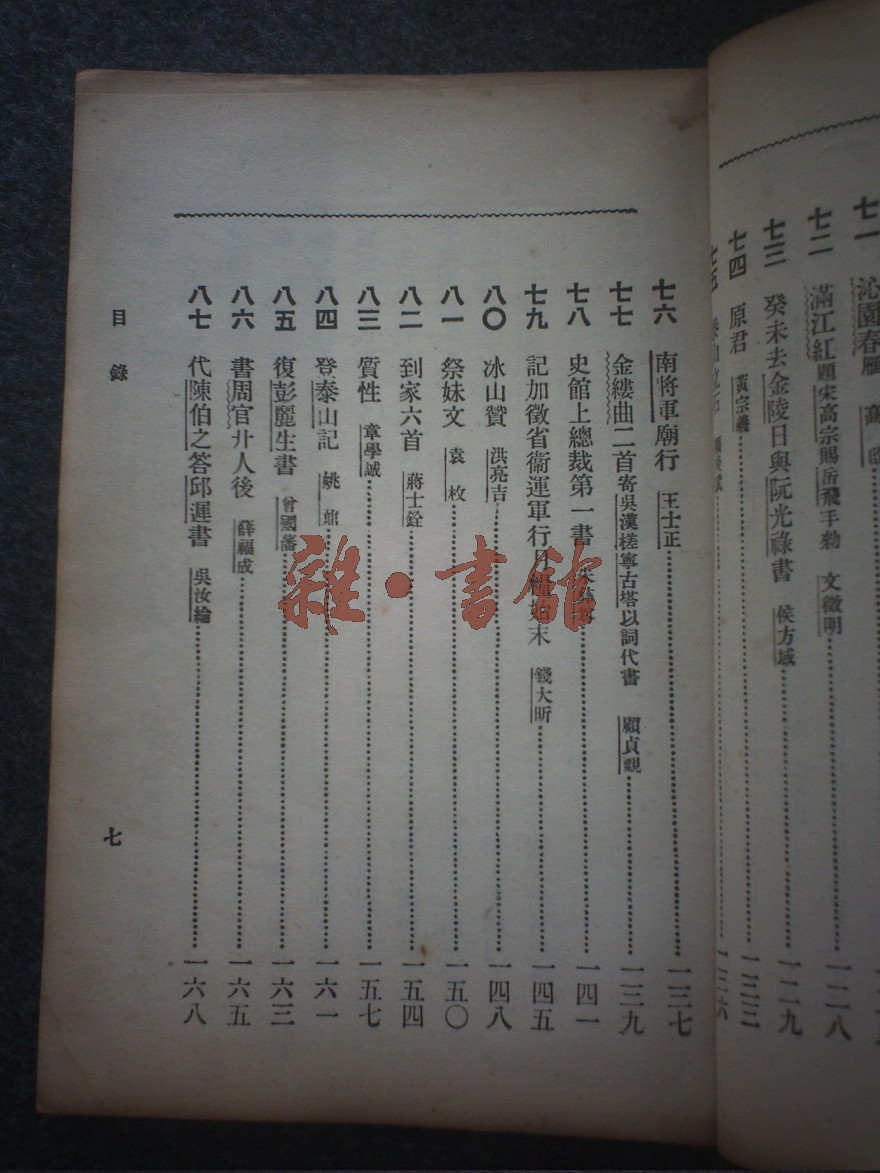 七一 沁園春雁 高
七二 滿江紅題宋高宗賜岳飛手勅 文徵明 一二八
七三 癸未去金陵日與阮光祿書 侯方域 一二九
七四 原君 黃宗羲 一三三
七五 泰山 一三六
七六 南將軍廟行 王士正 一三七
七七 金縷曲二首寄吳漢槎寧古塔以詞代書 顧貞觀 一三九
七八 史館上總裁第一書 一四一
七九 記加徵省衞運軍行月糧始末 錢大昕 一四五
八〇 冰山贊 洪亮吉 一四八
八一 祭妹文 袁枚 一五〇
八二 到家六首 蔣士銓 一五四
八三 質性 章學誠 一五七
八四 登泰山記 姚鼐 一六一
八五 復彭麗生書 曾國藩 一六三
八六 書周官廿人後 薛福成 一六五
八七 代陳伯之答邱遲書 吳汝綸 一六八
目錄
七
雜·書館